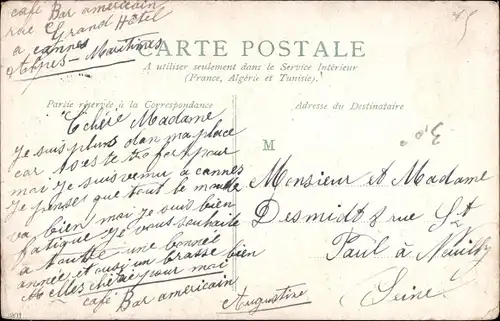 café Bar americain
rue Grand Hôtel
a cannes
Alpes-Maritimes
CARTE POSTALE
A utiliser seulement dans le Service Intérieur
(France, Algérie et Tunisie).
Partie réservée à la Correspondance
Adresse du Destinataire
Chère Madame
Je suis plus dan ma place
car
moi Je suis venu a cannes
Je pense que tout le monde
va bien moi Je suis bien
fatigue Je vous souhaite
a toute une bonne
année et brasse bien
Melle chérie pour moi
café Bar americain
Augustine
M
Monsieur et Madame
Desmidt 8 rue St
Paul à Neuilly
Seine